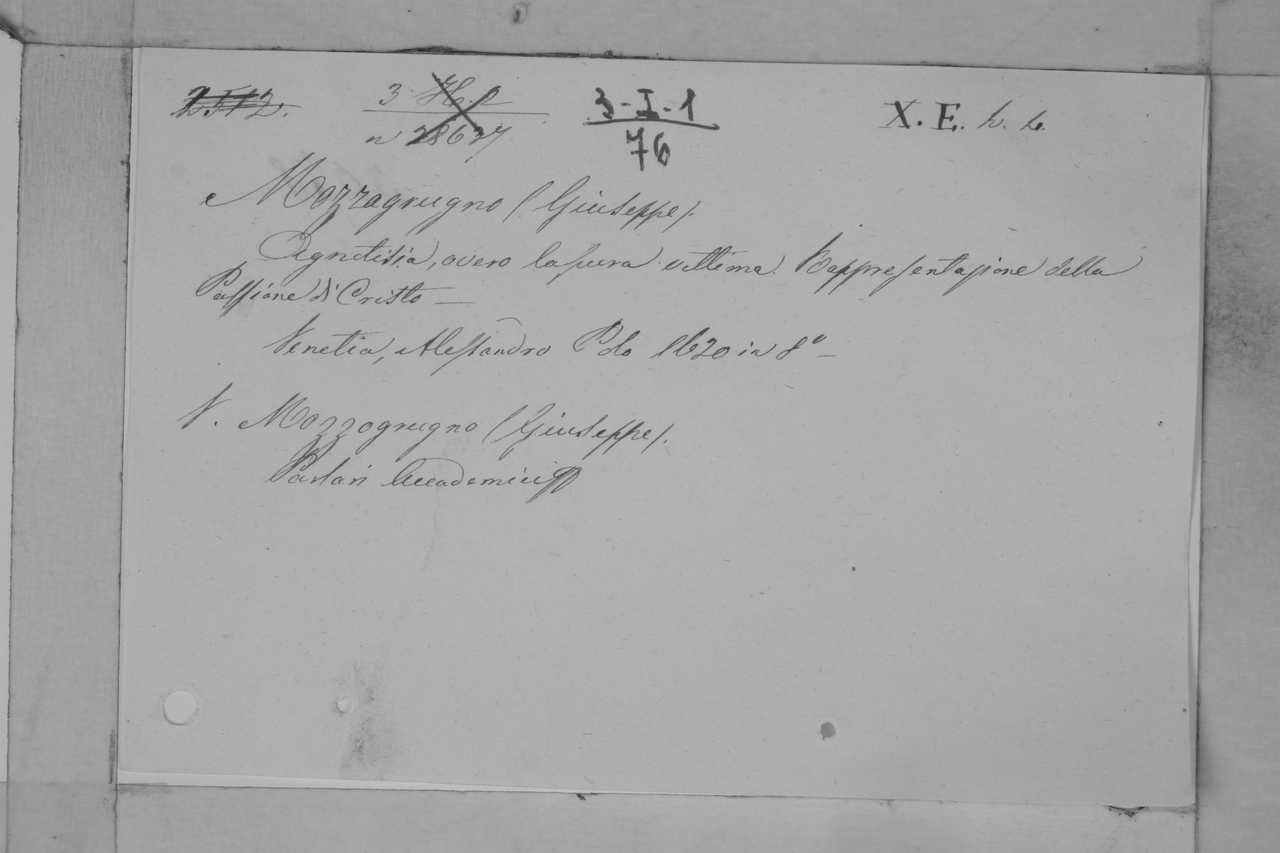 3-I-1 X. E. h. h.
76
Mozzagrugno (Giuseppe).
Agnitisia, overo la pura vittima. Rappresentazione della
Passione di Cristo —
Venetia, Alessandro Polo 1620 in 8º —
V. Mozzogrugno (Giuseppe).
Parlari Accademici